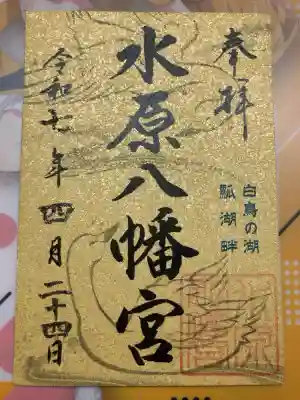 奉拝
白鳥の湖
瓢湖畔
水原八幡宮
令和七年四月二十四日